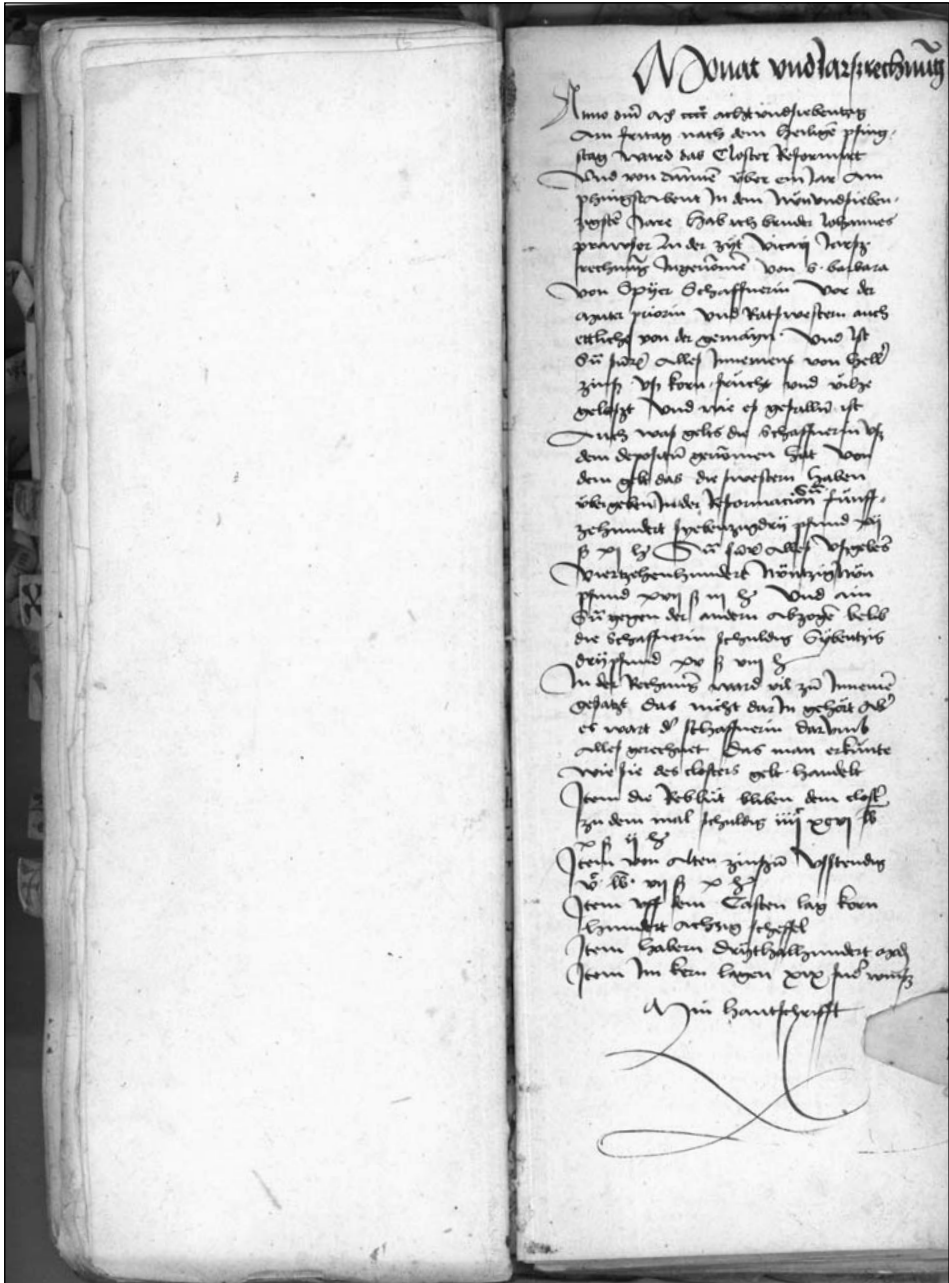 Monat vnd Jarsrechnũg
Anno dñi Mͦ ccccͦ achtvndsiebentzig
Am fritag nach dem heiligẽ pfing
stag ward das Closter Reformirt
Vnd von dannẽ über ein Jar Am
phingstabent In dem Nünvndsieben
zigstẽ Jare hab ich bruder Johannes
prauser In der zijt Vicarij Jarsz
rechnũg Ingenõmẽ von S. barbara
von Spijer Schaffnerin Vor der
Muter priorin Vnd Ratswestern auch
ettliche von der gemaÿn Vnd Ist
Sũ alles Innemens von
zinß Vß korn frücht vnd
geloszt Vnd wie es gefallen ist
Auch was gelts die Schaffnerin Vß
dem depositũ genõmen hat Von
dem gelt das die swestern haben
übergeben In der Reformaciõn Sũ fünff
zehundert sÿbenzigdrÿ pfund xij
ß xi h Sũ alles Vßgebes
Viertzehenhundert Nüntzig Nün
pfund xvij ß iij h Vnd ain
Sũ gegen der andern Abzogẽ belib
die Schaffnerin schuldig Sÿbentzig
drÿ pfund xv ß viij h
In der Rechnũg ward vil zũ Innemẽ
gesatzt das nicht dar In gehört Ab
es wart d schaffnerin darVmb
alles gerechnet Das man erkũnte
wie sie des closters gelt handelt
Item die Reblüt bliben dem clost
zu dem mal schuldig iiijͨ xcvi lb
x ß ij h
Item von alten zinßen Vsstendig
vͨ lb vij ß x h
Item vff dem Casten lag korn
hundert achzig scheffel
Item habern drÿthalhundert
Item Im kern lagen xix fud winß
Min hantschrifft